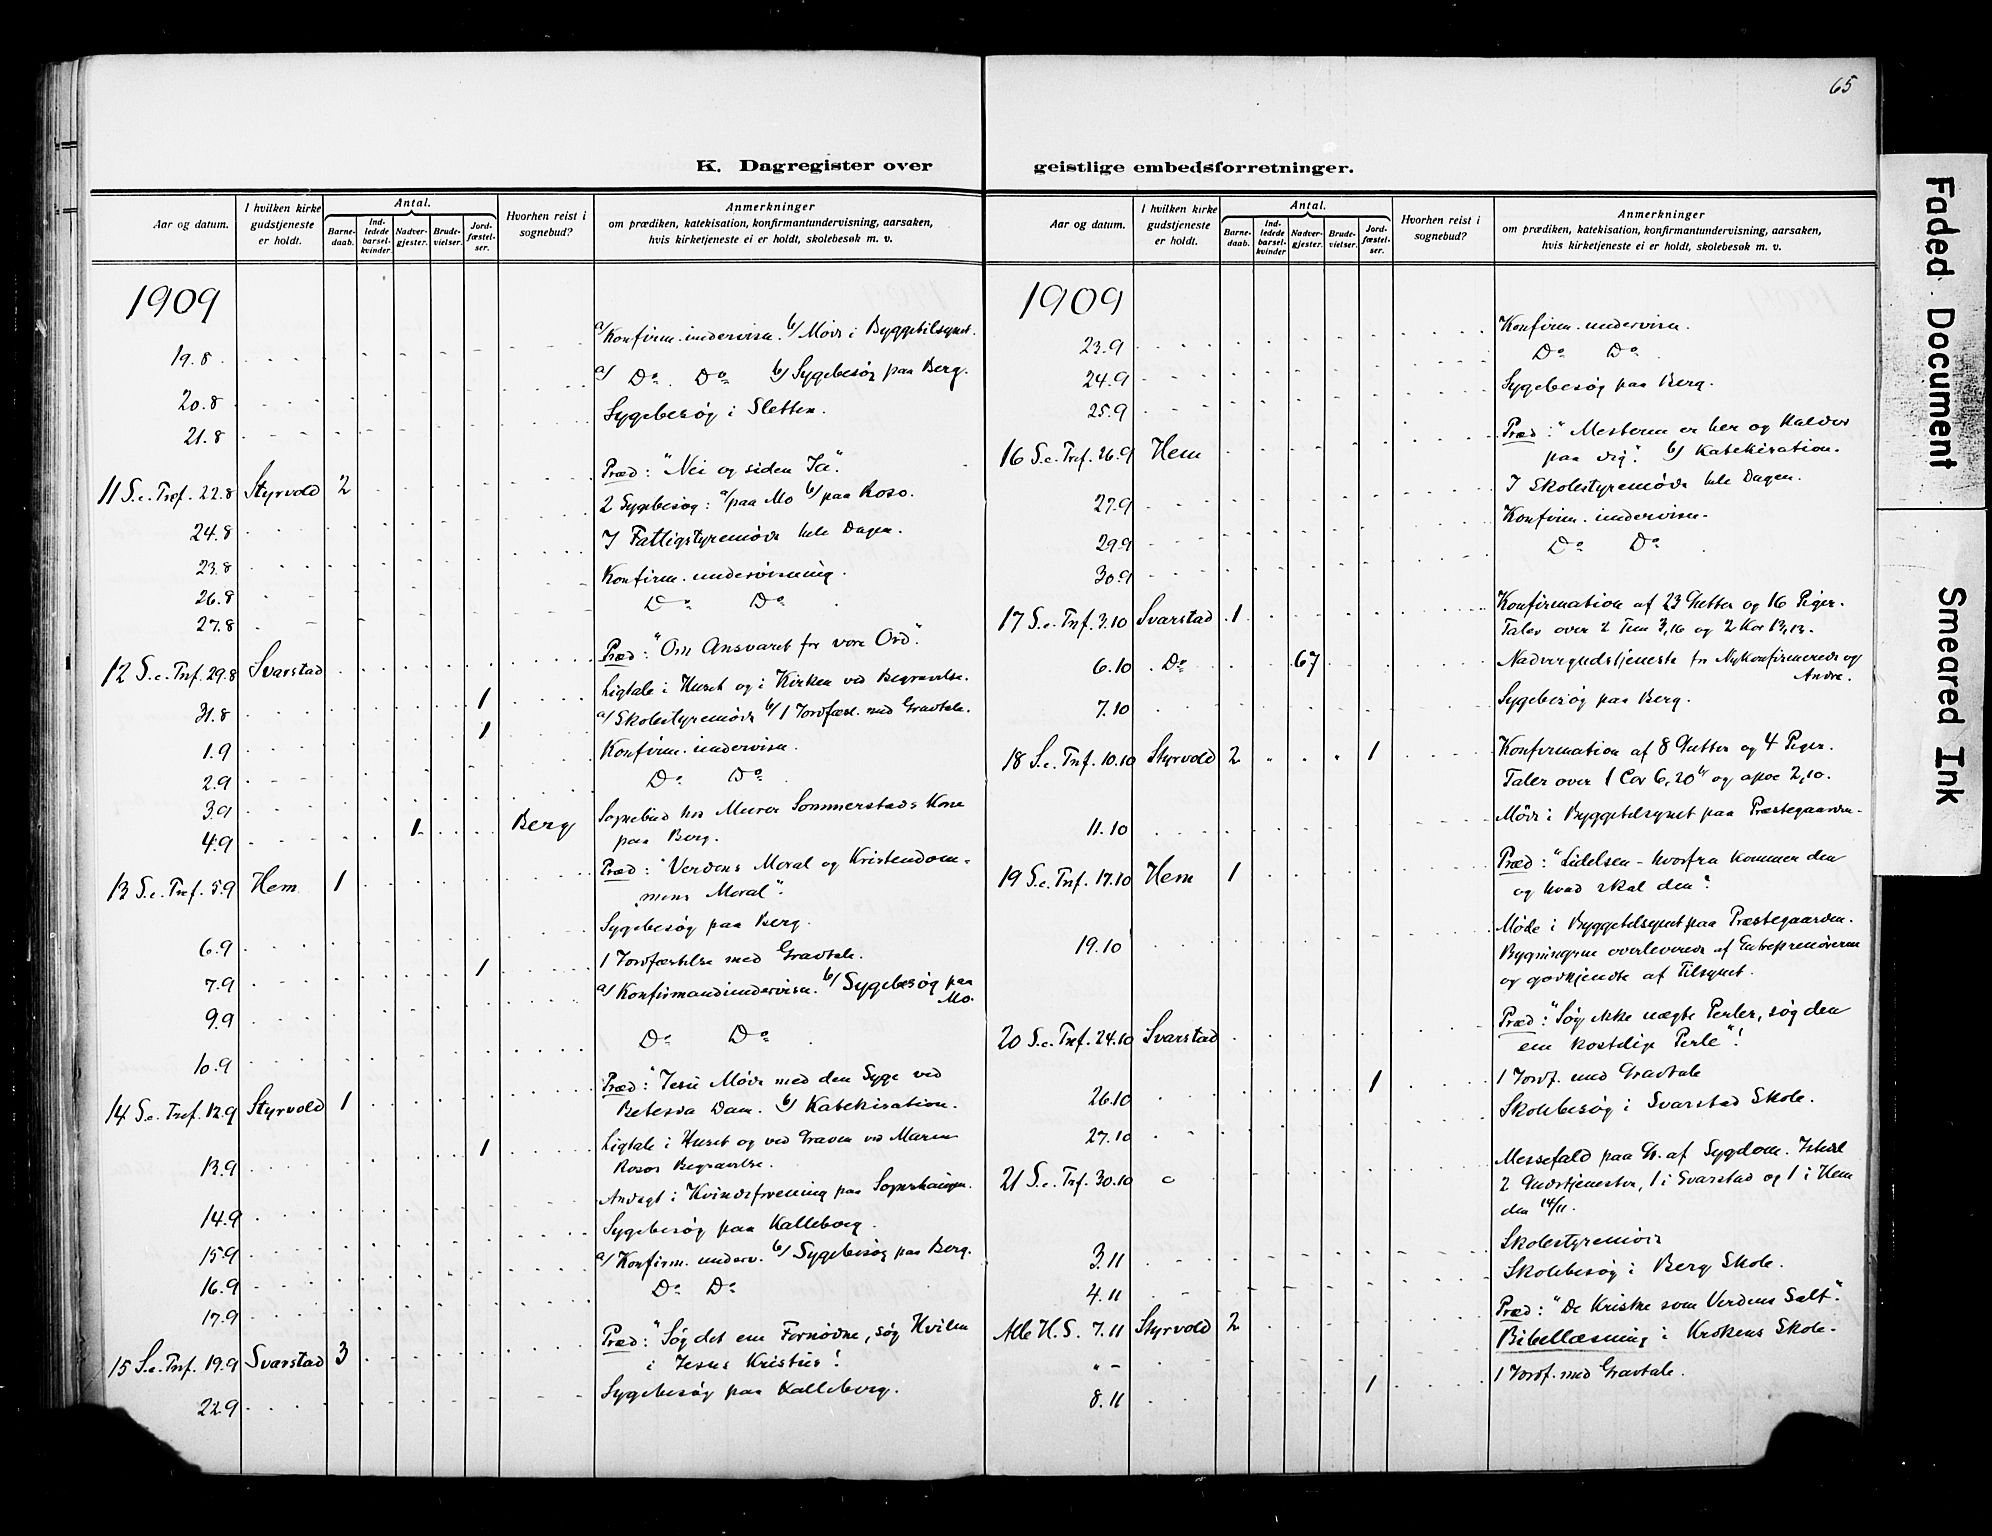 65
K. Dagregister over
geistlige embedsforretninger.
Aar og datum.
I hvilken kirke gudstjeneste er holdt.
Antal.
Barnedaab.
Indledede barselkvinder.
Nadvergjester.
Brudevielser.
Jordfæstelser.
Hvorhen reist i sognebud?
Anmerkninger
om prædiken, katekisation, konfirmantundervisning, aarsaken,
hvis kirketjeneste ei er holdt, skolebesøk m. v.
1909
19.8 a/ Konfirm. undervisn. b/ Møde i Byggetilsynet.
20.8 a/ Do Do b/ Sygebesøg paa Berg.
21.8 Sygebesøg i Sletten.
11 S. e. Tref. 22.8 Styrvold 2 Præd: "Nei og siden Ja".
24.8 2 Sygebesøg: a/ paa Mo b/ paa Roso.
23.8 I Fattigstyremøde hele Dagen.
26.8 Konfirm. undervisning.
27.8 Do Do
12 S. e. Tref. 29.8 Svarstad Præd: "Om Ansvaret for vore Ord".
31.8 1 Ligtale i Huset og i Kirken ved Begravelse.
1.9 1 a/ Skolestyremøde b/ 1 Jordfæst. med Gravtale.
2.9 Konfirm. undervisn.
3.9 Do Do
4.9 1 Berg Sognebud hos Murer Sommerstads Kone
paa Berg.
13 S. e. Tref. 5.9 Hem 1 Præd: "Verdens Moral og Kristendom-
mens Moral".
6.9 Sygebesøg paa Berg.
7.9 1 1 Jordfæstelse med Gravtale.
9.9 a/ Konfirmandundervisn. b/ Sygebesøg paa
Mo.
10.9 Do Do
14 S. e. Tref. 12.9 Styrvold 1 Præd: "Jesu Møde med den Syge ved
Betesda Dam. b/ Katekisation.
13.9 1 Ligtale i Huset og ved Graven ved Maren
Rosos Begravelse.
14.9 Andagt i Kvindeforening paa
15.9 Sygebesøg paa Kalleberg.
16.9 a/ Konfirm. underv. b/ Sygebesøg paa Berg.
17.9 Do Do
15 S. e. Tref. 19.9 Svarstad 3 Præd: "Søg det ene Fornødne, søg Hvilen
i Jesus Kristus!
22.9 Sygebesøg paa Kalleberg.
Aar og datum.
I hvilken kirke gudstjeneste er holdt.
Antal.
Barnedaab.
Indledede barselkvinder
Nadvergjester.
Brudevielser.
Jordfæstelser.
Hvorhen reist i sognebud?
Anmerkninger
om prædiken, katekisation, konfirmantundervisning, aarsaken,
hvis kirketjeneste ei er holdt, skolebesøk m. v.
1909
23.9 Konfirm. undervisn.
24.9 Do Do
25.9 Sygebesøg paa Berg.
16 S. e. Tref. 26.9 Hem Præd: "Mesteren er her og kalder
paa dig". b/ Katekisation.
27.9 I Skolestyremøde hele Dagen.
29.9 Konfirm. undervisn.
30.9 Do Do
17 S. e. Tref. 3.10 Svarstad 1 Konfirmation af 23 Gutter og 16 Piger.
Taler over 2 Tim 3,16 og 2 Kor 13,13.
6.10 Do 67 Nadvergudstjeneste for Nykonfirmerede og
Andre.
7.10 Sygebesøg paa Berg.
18 S. e. Tref. 10.10 Styrvold 2 1 Konfirmation af 8 Gutter og 4 Piger.
Taler over 1 Cor 6,20 b og apoc 2,10.
11.10 Møde i Byggetilsynet paa Præstegaarden.
19 S. e. Tref. 17.10 Hem 1 Præd: "Lidelsen - hvorfra kommer den
og hvad skal den"?
19.10 Møde i Byggetilsynet paa Præstegaarden.
Bygningerne overleverede af Entreprenørerne
og godkjendte af Tilsynet.
20 S. e. Tref. 24.10 Svarstad Præd: "Søg ikke uægte Perler, søg den
ene kostelige Perle"!
26.10 1 1 Jordf. med Gravtale
27.10 Skolebesøg i Svarstad Skole.
21 S. e. Tref. 30.10 Messefald paa Gr. af Sygdom. Isteden
2 Gudstjenester, 1 i Svarstad og 1 i Hem
den 14/11.
3.11 Skolestyremøde
4.11 Skolebesøg i Berg Skole.
Alle H. S. 7.11 Styrvold 2 Præd: "De Kristne som Verdens Salt".
" - Bibellæsning i Krokens Skole.
8.11 1 1 Jordf. med Gravtale.
Faded Document
Smeared Ink